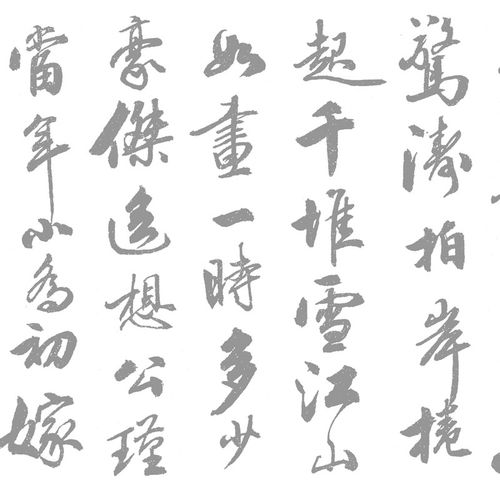 驚濤拍岸捲
起千堆雪江山
如畫一時多少
豪傑遙想公瑾
當年小喬初嫁